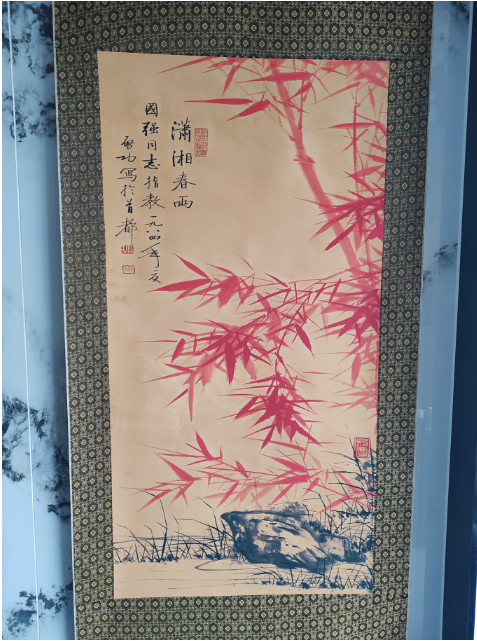 瀟湘春雨
國强同志指教一九八四年夏
啓功寫於首都